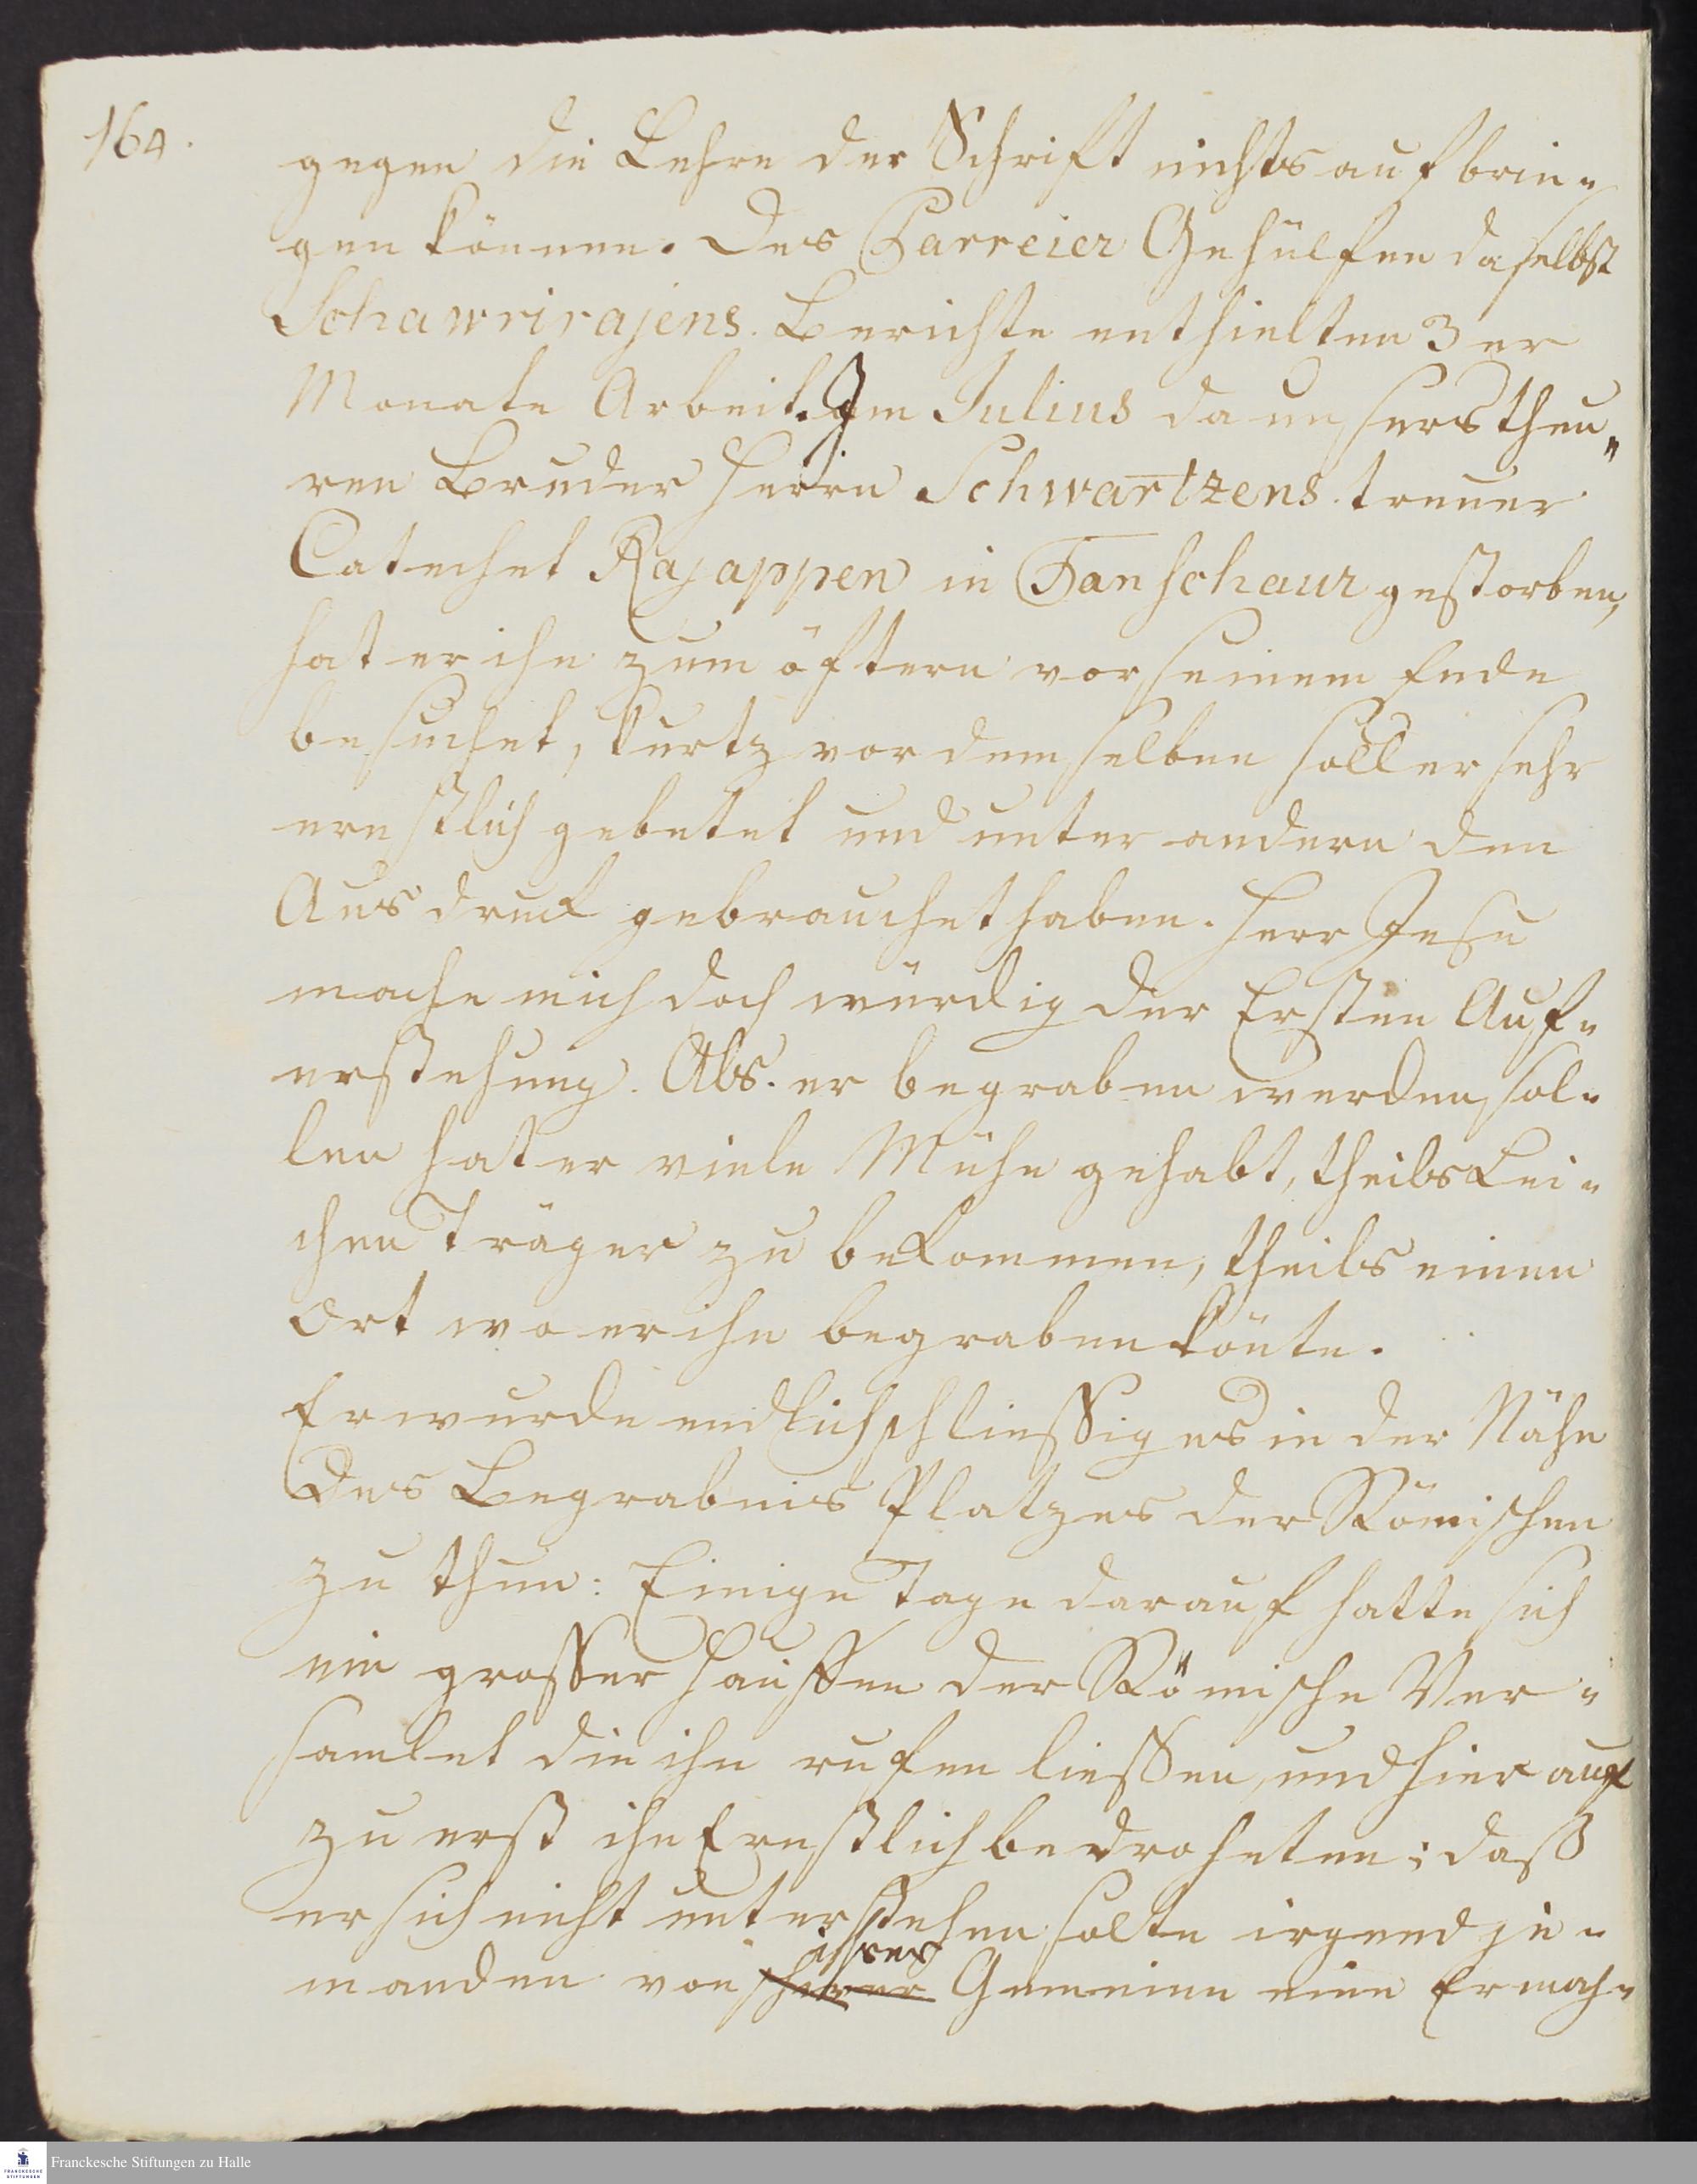 164.
gegen die Lehre der Schrift nichts aufbrin-
gen können. Des Parreier Gehülfen daselbst
Schawrirajens. Berichte enthielten 3er
Monate Arbeit. Im Julius da unsers theu-
ren Bruder Herrn Schwartzens. treuer
Catechet Rajappen in Tanschaur gestorben,
hat er ihn zum öftern vor seinem Ende
besuchet, kurtz vor demselben soll er sehr
ernstlich gebetet und unter andern den
Ausdruck gebrauchet haben. Herr Jesu
mache mich doch würdig der Ersten Auf-
erstehung. Als. er begraben werden sol-
len hat er viele Mühe gehabt, theils Lei-
chen Träger zu bekommen, theils einen
Ort wo er ihn begraben könte.
Er wurde endlich schliessig es in der Nähe
des Begrabnis Platzes der Römischen
zu thun: Einige Tage darauf hatte sich
ein grosser Hauffen der Römische Ver-
samlet die ihn rufen liessen, und hier auf
zu erst ihn Ernstlich bedroheten; daß
er sich nicht unterstehen solte irgend je-
manden von ihrer Gemeine eine Ermah-
Franckesche Stiftungen zu Halle
FRANCKESCHE
STIFTUNGEN